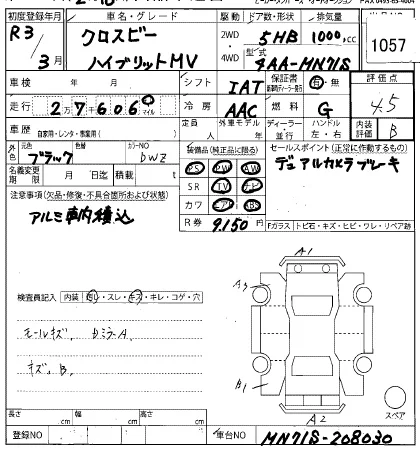 初度登録年月 車名・グレード 駆動 ドア数・形状 排気量
R3 クロスビー 2WD 5HB 1000 cc 1057
3月 ハイブリットMV 4WD 型式 4AA-MN71S
車検 年 月 シフト IAT 保証書 有・無 評価点
走行 27606⁰ マイル 冷房 AAC 燃料 G 4.5
車歴 自家用・レンタ・事業用( ) 定員 人 外車モデル 年 ディーラー 並行 ハンドル 左・右 内装評価 B
外色 元色 ブラック 色替 カラーNO bwz 装備品(純正品に限る) セールスポイント(正常に作動するもの)
名義変更期限 月 日迄 積載 t PS PW AW デュアルカメラブレーキ
注意事項(欠品・修復・不具合箇所および状態) SR TV ナビ
アルミ車内積込 カワ エアB ABS
R券 9150円 Fガラス トビ石・キズ・ヒビ・ワレ・リペア跡
A1
検査員記入 内装 汚し・スレ・キズ・キレ・コゲ・穴 A3
モールキズ、 ミラーA、
キズ、B、 B1
スペア
長さ cm 幅 cm 高さ cm A2
登録NO 車台NO MN71S-208030